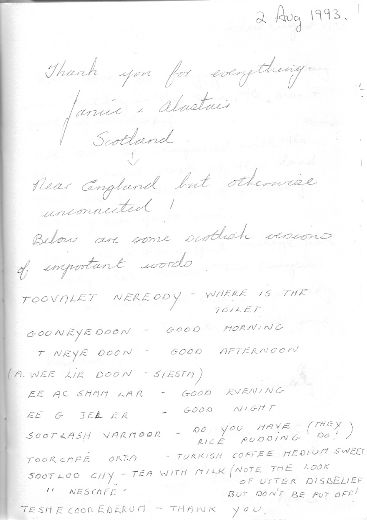 2 Aug 1993.
Thank you for everything
Janie & Alastair
Scotland
Near England but otherwise
unconnected !
Below are some scottish versions
of important words
TOOVALET NEREODY - WHERE IS THE
TOILET
GOONEYEDOON - GOOD MORNING
T NEYE DOON - GOOD AFTERNOON
(A WEE LIE DOON - SIESTA)
EE AC SHAM LAR - GOOD EVENING
EE G - GOOD NIGHT
SOOTLASH VARMOOR - DO YOU HAVE (THEY
RICE PUDDING DO!)
TOORCAFE ORTA - TURKISH COFFEE MEDIUM SWEET
SOOTLOO CHY - TEA WITH MILK (NOTE THE LOOK
OF UTTER DISBELIEF
" NESCAFE - BUT DON'T BE PUT OFF!
TESHECOOREDERUM - THANK YOU.